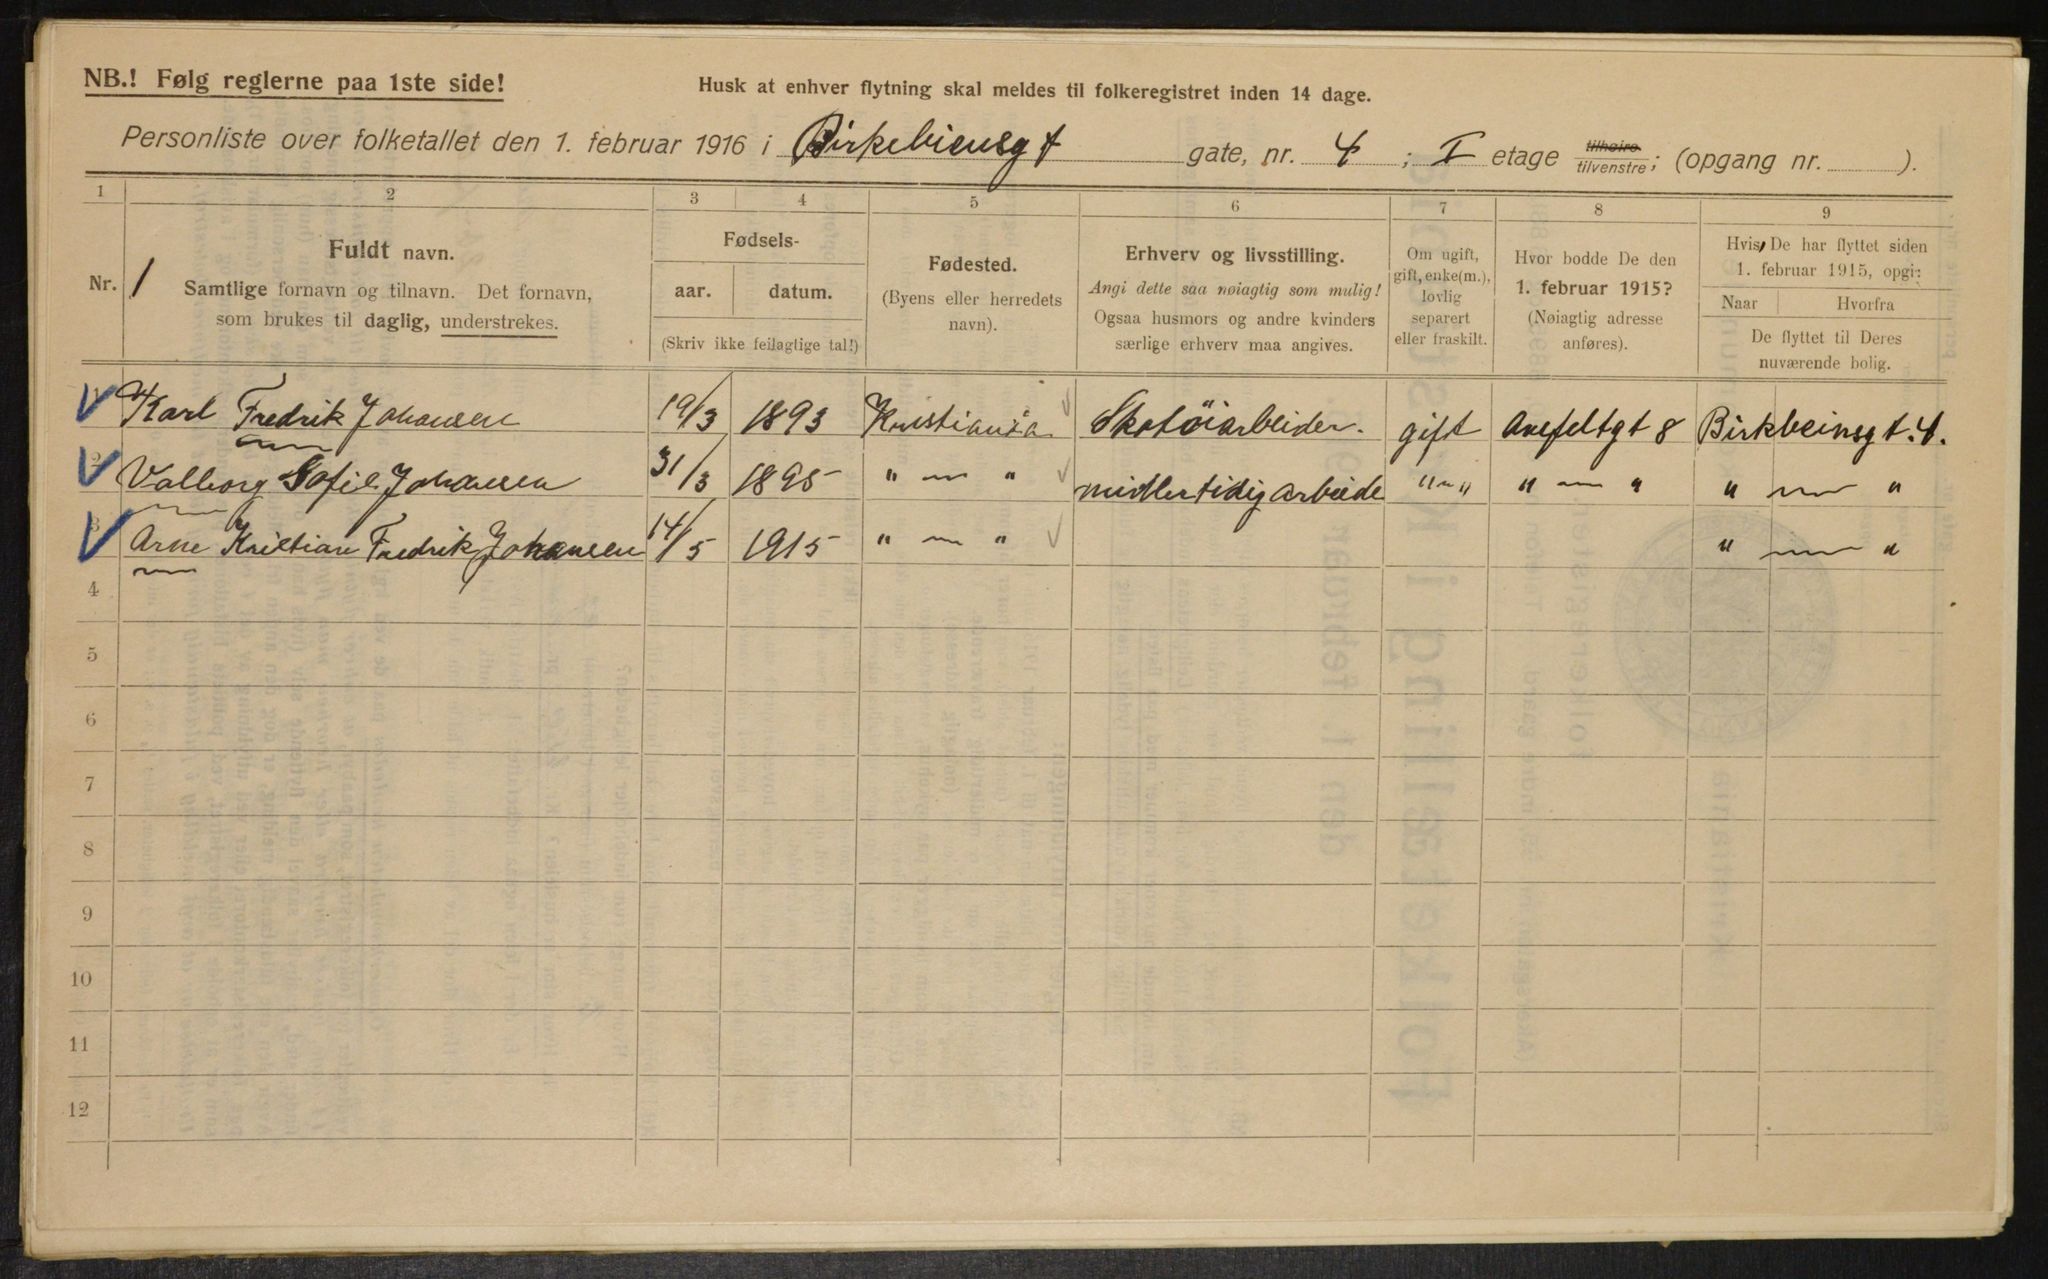 NB.! Følg reglerne paa 1ste side!
Husk at enhver flytning skal meldes til folkeregistret inden 14 dage.
Personliste over folketallet den 1. februar 1916 i Birkebiensgt gate, nr. 4 ; I etage tilhøire tilvenstre; (opgang nr. ).
1 2 3 4 5 6 7 8 9
Nr. 1
Fuldt navn.
Samtlige fornavn og tilnavn. Det fornavn,
som brukes til daglig, understrekes.
Fødsels-
aar. datum.
(Skriv ikke feilagtige tal!)
Fødested.
(Byens eller herredets
navn).
Erhverv og livsstilling.
Angi dette saa nøiagtig som mulig!
Ogsaa husmors og andre kvinders
særlige erhverv maa angives.
Om ugift,
gift, enke(m.),
lovlig
separert
eller fraskilt.
Hvor bodde De den
1. februar 1915?
(Nøiagtig adresse
anføres).
Hvis De har flyttet siden
1. februar 1915, opgi:
Naar Hvorfra
De flyttet til Deres
nuværende bolig.
Karl Fredrik Johansen 19/3 1893 Kristiania Skotöiarbeider. gift Birkbeinsgt. 4.
2 Valborg Sofie Johansen 31/3 1895 " — " midlertidig arbeide " — " " — " " — "
3 Arne Kristian Fredrik Johansen 14/5 1915 " — " " — "
4
5
6
7
8
9
10
11
12